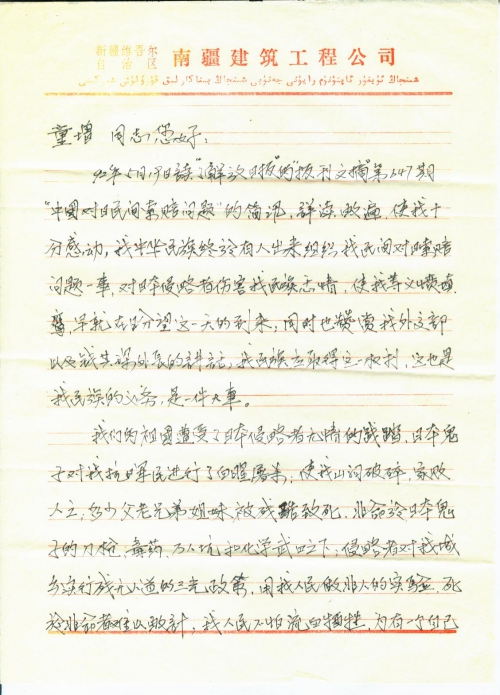 新疆维吾尔
自治区
南疆建筑工程公司
童增 同志:您好:
92年5月19日读了解放日报的"报刊文摘第647期
"中国对日民间索赔问题"的简讯,详读数遍,使我十
分感动,我中华民族终於有人出来组织我民间对日索赔
问题一事,对日本侵略者伤害我民族之情,使我等义愤填
膺,早就在盼望这一天的到来,同时也赞赏我外交部
以及钱其琛外长的讲话,我民族应取得这一权利,这也是
我民族的义务,是一件大事。
我们的祖国遭受了日本侵略者无情的践踏,日本鬼
子对我抗日军民进行了血腥屠杀,使我山河破碎,家败
人亡,多少父老兄弟姐妹被残酷致死,非命於日本鬼
子的刀枪、毒药、万人坑和化学武四之下;侵略者对我城
乡实行残无人道的三光政策,用我人民做非人的实验,死
於非命者难以数计,我人民不怕流血牺牲,为有一个自己